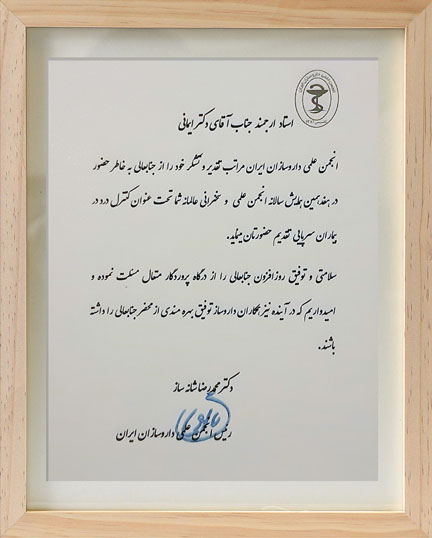 استاد ارجمند جناب آقای دکتر ایمانی
انجمن علمی داروسازان ایران مراتب تقدیر و تشکر خود را از جنابعالی به خاطر حضور
در هفدهمین همایش سالانه انجمن علمی و سخنرانی عالمانه شما تحت عنوان کنترل درد در
بیماران سرپایی تقدیم حضورتان مینماید.
سلامتی و توفیق روزافزون جنابعالی را از درگاه پروردگار متعال مسئلت نموده و
امیدواریم که در آینده نیز همکاران داروساز توفیق بهره مندی از محضر جنابعالی را داشته
باشند.
دکتر محمدرضا شانه ساز
رئیس انجمن علمی داروسازان ایران